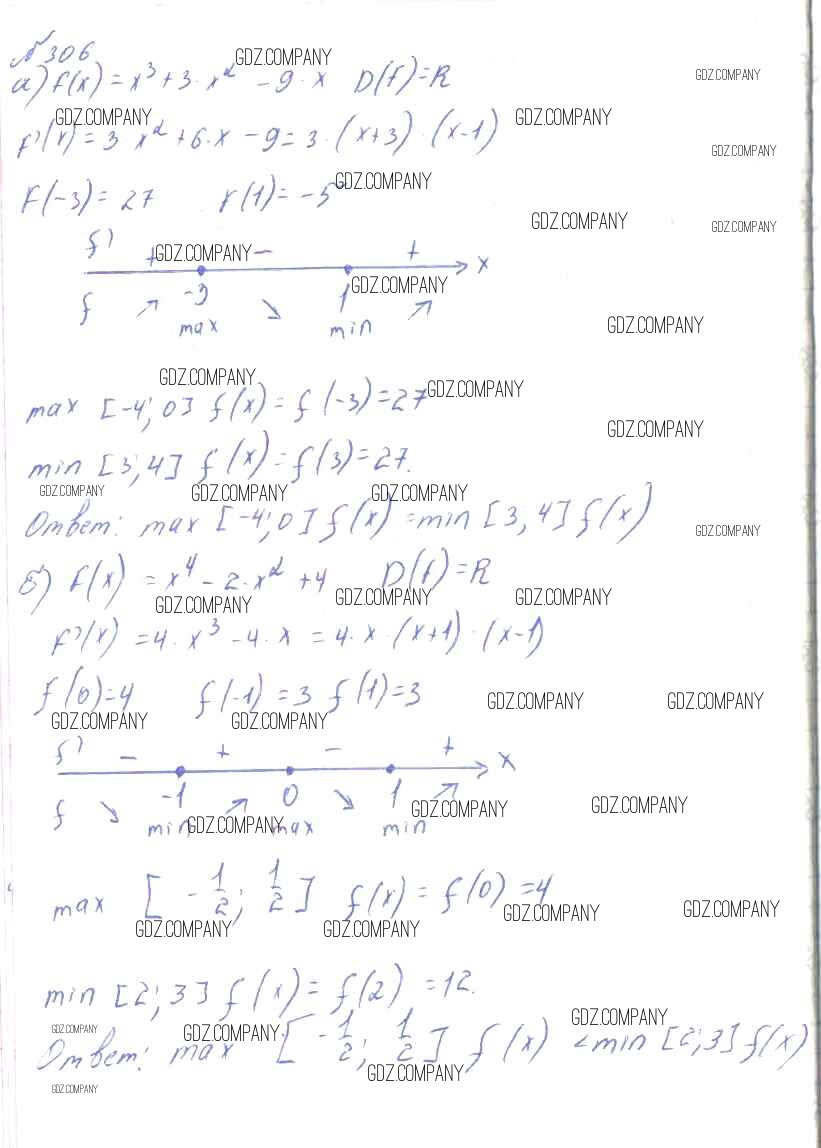 №306
GDZ.COMPANY
а) f(x) = x³ + 3·x² - 9·x D(f)=R
GDZ.COMPANY
GDZ.COMPANY GDZ.COMPANY
f'(x) = 3x² + 6·x - 9 = 3·(x+3)·(x-1)
GDZ.COMPANY
GDZ.COMPANY
f(-3) = 27 f(1) = -5
GDZ.COMPANY GDZ.COMPANY
f' + GDZ.COMPANY - + x
f ↗ -3 ↘ 1 ↗
GDZ.COMPANY
max min
GDZ.COMPANY
GDZ.COMPANY
max [-4; 0] f(x) = f(-3) = 27
GDZ.COMPANY
GDZ.COMPANY
min [3; 4] f(x) = f(3) = 27.
GDZ.COMPANY GDZ.COMPANY GDZ.COMPANY
Ответ: max [-4; 0] f(x) = min [3, 4] f(x)
GDZ.COMPANY
б) f(x) = x⁴ - 2·x² + 4 D(f)=R
GDZ.COMPANY GDZ.COMPANY GDZ.COMPANY
f'(x) = 4·x³ - 4·x = 4·x·(x+1)·(x-1)
f(0)=4 f(-1) = 3 f(1)=3
GDZ.COMPANY GDZ.COMPANY
GDZ.COMPANY GDZ.COMPANY
f' - + - + x
f ↘ -1 ↗ 0 ↘ 1 ↗
GDZ.COMPANY GDZ.COMPANY
min GDZ.COMPANY max min
max [-1/2; 1/2] f(x) = f(0) = 4
GDZ.COMPANY GDZ.COMPANY
GDZ.COMPANY GDZ.COMPANY
min [2; 3] f(x) = f(2) = 12.
GDZ.COMPANY GDZ.COMPANY GDZ.COMPANY
Ответ: max [-1/2; 1/2] f(x) < min [2; 3] f(x)
GDZ.COMPANY
GDZ.COMPANY